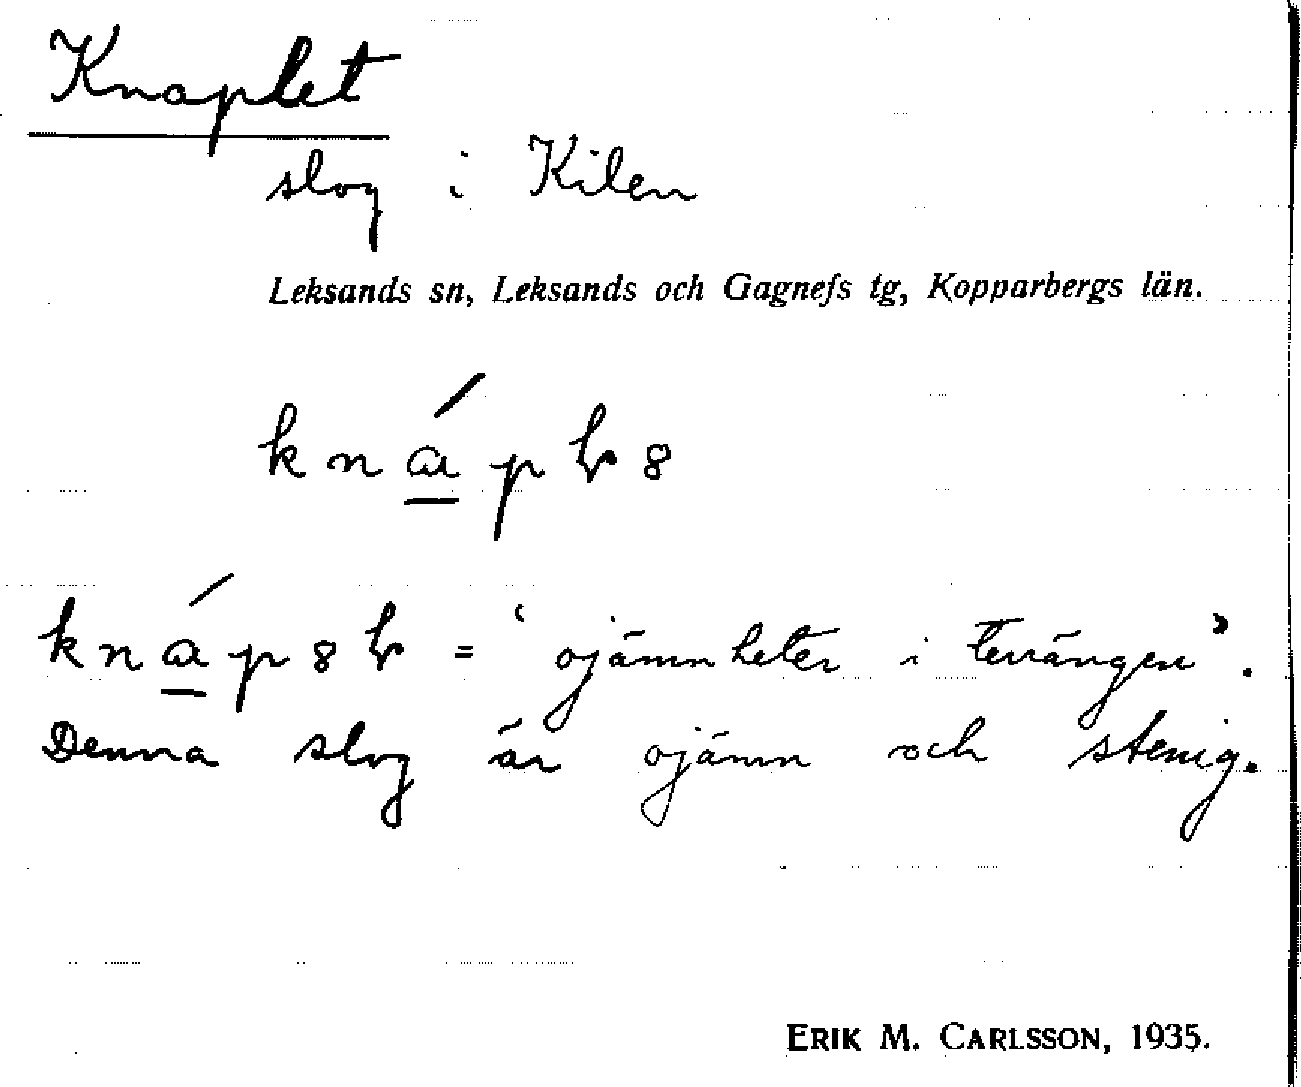 Knaplet
slog i Kilen
Leksands sn, Leksands och Gagnefs tg, Kopparbergs län.
= "ojämnheter i terrängen".
Denna slog är ojämn och stenig.
ERIK M. CARLSSON, 1935.